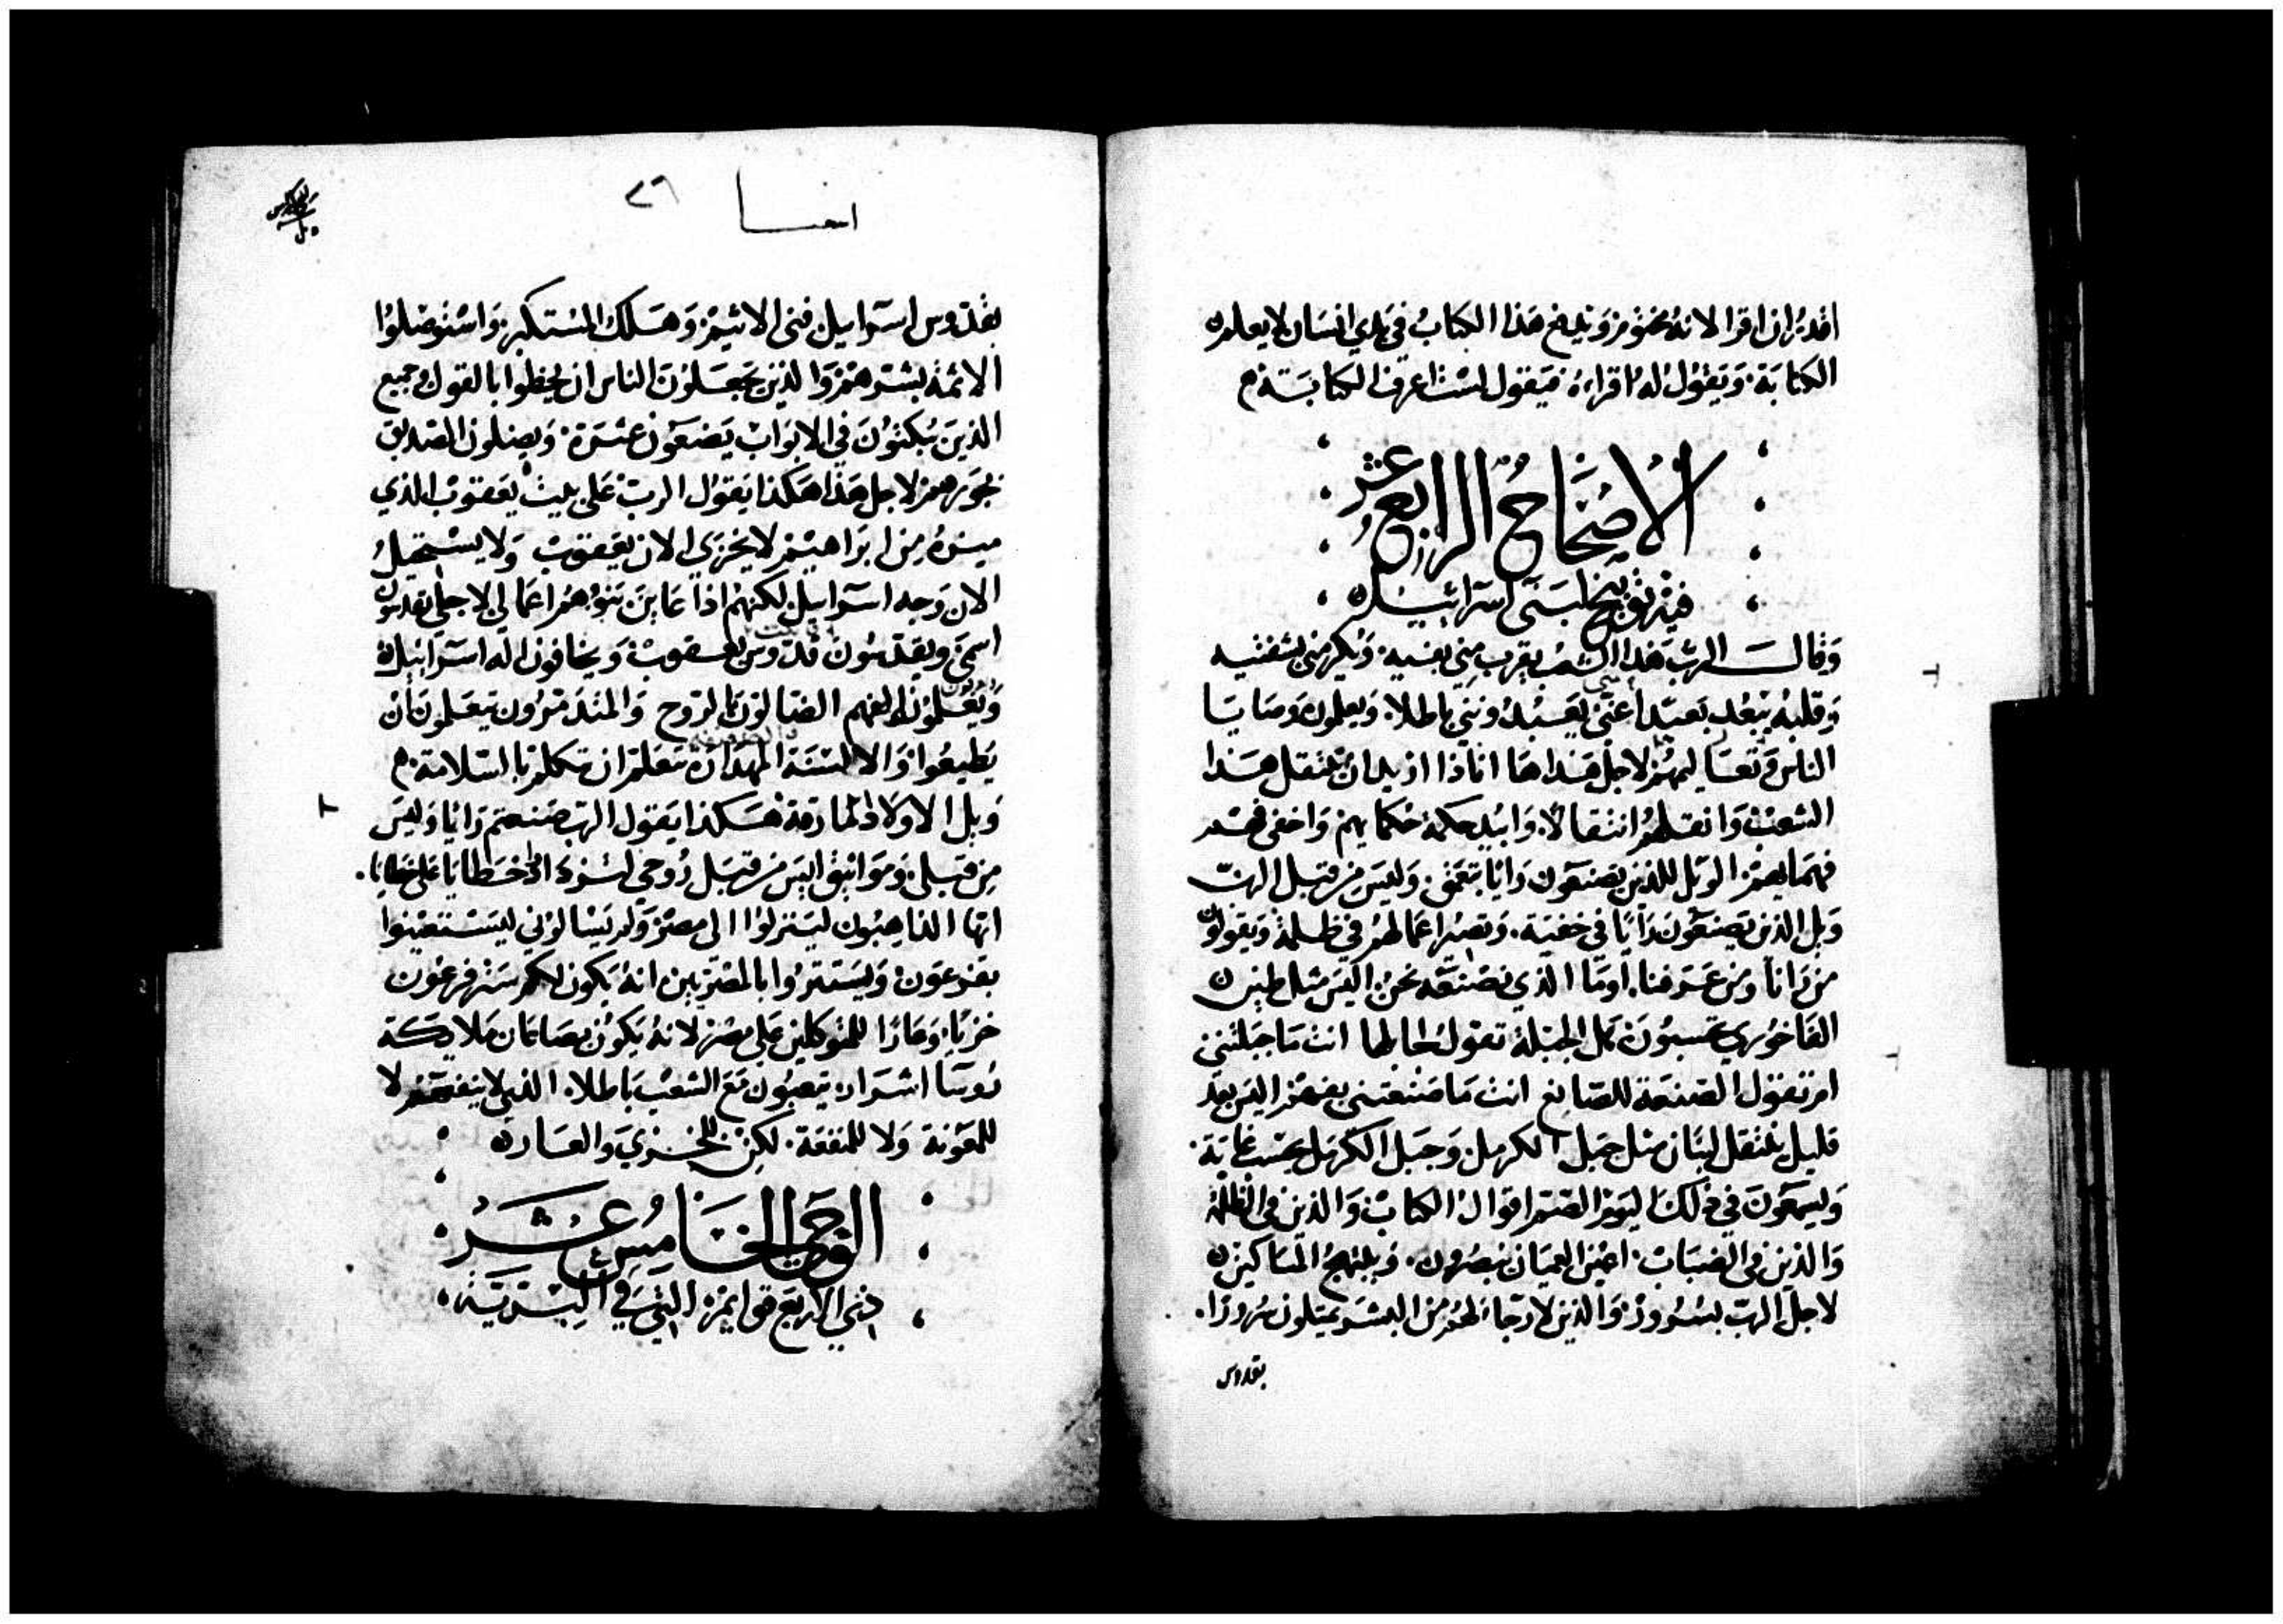 اقدر ان اقرا لانه مختوم ويدفع هذا الكتاب في يدي انسان لا يعلم
الكتابة. ويقول له اقراه فيقول لست اعرف الكتابة
الاصحاح الرابع عشر
فيه توبيخ لبني اسرائيل
وقال الرب هذا الشعب يقرب مني بفيه. ويكرمني بشفتيه
وقلبه يبعد بعيدا عني يعبدونني باطلا. ويعلمون وصايا
الناس وتعاليمهم لاجل هذا ها اناذا ازيد ان ينتقل هذا
الشعب وانقلهم انتقالا. وابيد حكمة حكمايهم واخفي فهم
فهمايهم الويل للذين يصنعون رايا بتعمق. وليس من قبل الرب
ويل الذين يصنعون رايا في خفية. وتصير اعمالهم في ظلمة ويقولون
من رانا ومن عرفنا. او ما الذي نصنعه نحن. اليس مثل طين
الفاخوري تحسبون هل الجبلة تقول لجابلها انت ما جبلتني
ام تقول الصنعة للصانع انت ما صنعتني بفهم اليس بعد
قليل ينتقل لبنان مثل جبل الكرمل. وجبل الكرمل يحسب غابة.
ويسمعون في ذلك اليوم الصم اقوال الكتاب والذين في الظلمة
والذين في الضباب. اعين العميان يبصرون. ويبتهج المساكين
لاجل الرب بسرور. والذين لا رجا لهم من البشر يمتلون سرورا.
بقدوس
اشعيا ٢٦
بقدوس اسراييل فني الاثيم. وهلك المستكبر. واستوصلوا
الاثمة بشرهم. والذين يجعلون الناس ان يخطوا بالقول وجميع
الذين يبكتون في الابواب يضعون عثرة. ويضلون الصديق
بجورهم لاجل هذا هكذا يقول الرب على بيت يعقوب الذي
ميزه من ابراهيم لا يخزى الان يعقوب ولا يستحيل
الان وجه اسراييل لكنهم اذا عاين بنوهم اعمالي لاجلي يقدسون
اسمي ويقدسون قدوس يعقوب ويخافون اله اسرائيل
ويعلمون الفهم الضالون بالروح والمتذمرون يتعلمون ان
يطيعوا والالسنة تتعلم ان تتكلم بالسلامة
ويل الاولاد المارقة هكذا يقول الرب صنعتم رايا وليس
من قبلي. ومواثيق ليس من قبل روحي لتزيدوا خطايا على خطايا.
ايها الذاهبون لينزلوا الى مصر ولم يسالوني ليستعينوا
بفرعون ويستتروا بالمصريين انه يكون لكم ستر فرعون
خزيا. وعارا للمتوكلين على مصر لانه يكون بصاعان ملايكة
روسا اشرار. يتعبون مع الشعب باطلا. الذي لا ينفعهم لا
للمعونة ولا للمنفعة. لكن للخزي والعار
الوحي الخامس عشر
ذي الاربع قوايم التي في البرية